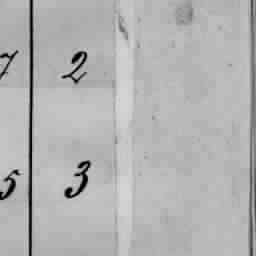 7 2
5 3